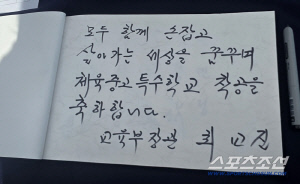 모두 함께 손잡고
살아가는 세상을 꿈꾸며
체육중고 특수학교 착공을
축하합니다.
교육부장관 최교진
스포츠조선